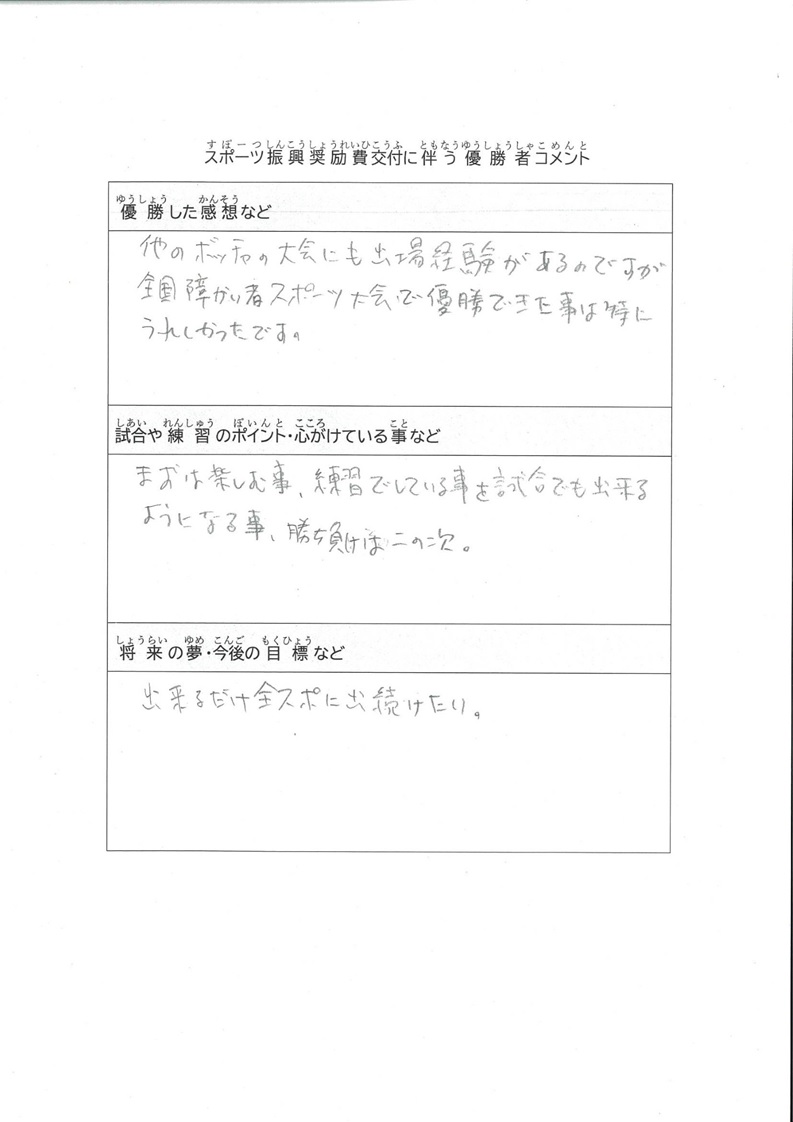 すぽーつしんこうしょうれいひこうふ ともなうゆうしょうしゃこめんと
スポーツ振興奨励費交付に伴う優勝者コメント
ゆうしょう かんそう
優勝した感想など
他のボッチャの大会にも出場経験があるのですが
全国障がい者スポーツ大会で優勝できた事は特に
うれしかったです。
しあい れんしゅう ぽいんと こころ こと
試合や練習のポイント・心がけている事など
まずは楽しむ事、練習でしている事を試合でも出来る
ようになる事、勝ち負けは二の次。
しょうらい ゆめ こんご もくひょう
将来の夢・今後の目標など
出来るだけ全スポに出続けたい。